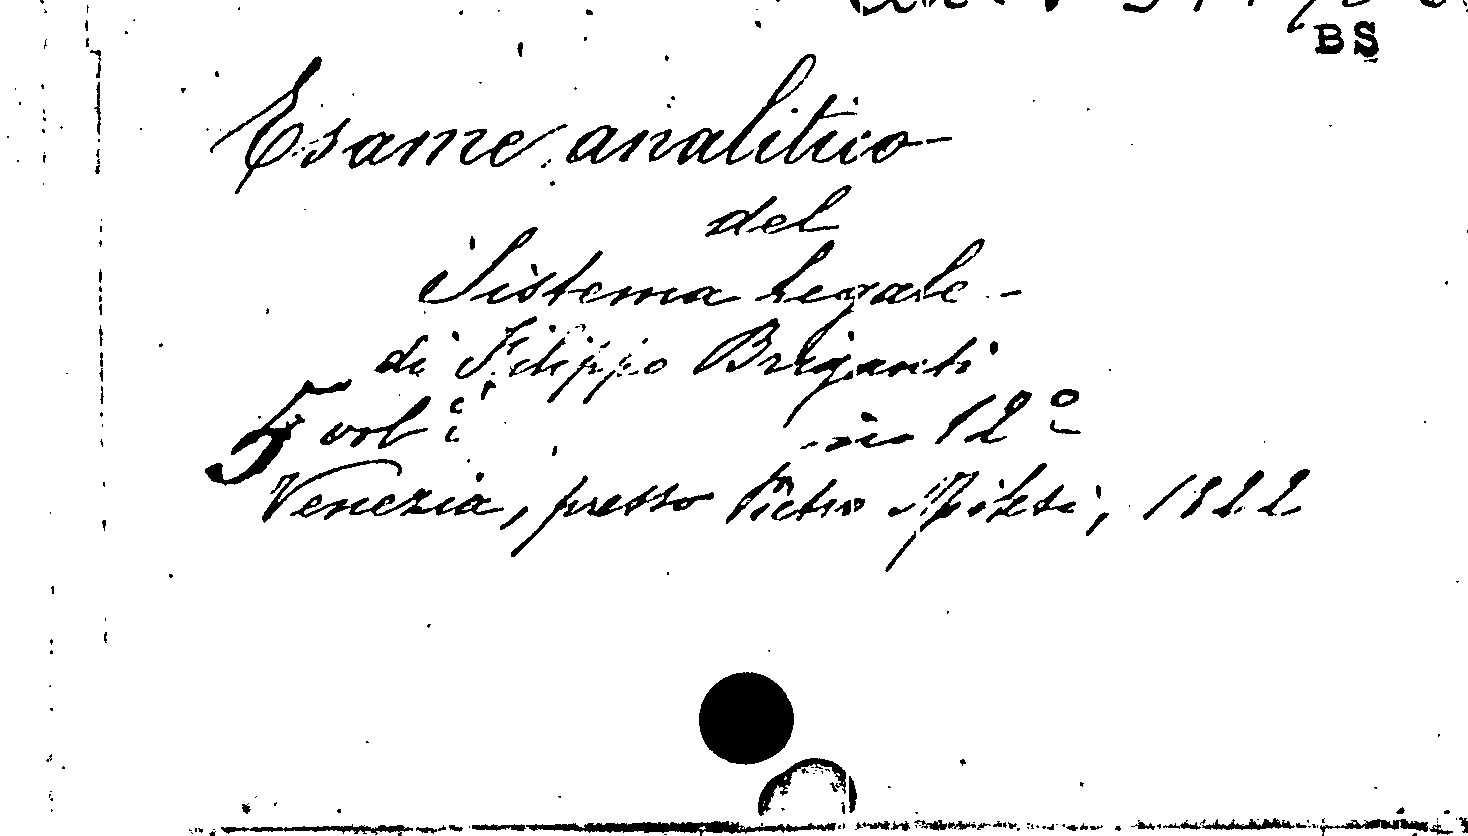 BS
Esame analitico
del
Sistema legale -
di Filippo Briganti
5 vol i in 12º
Venezia, presso Pietro Milesi, 1822